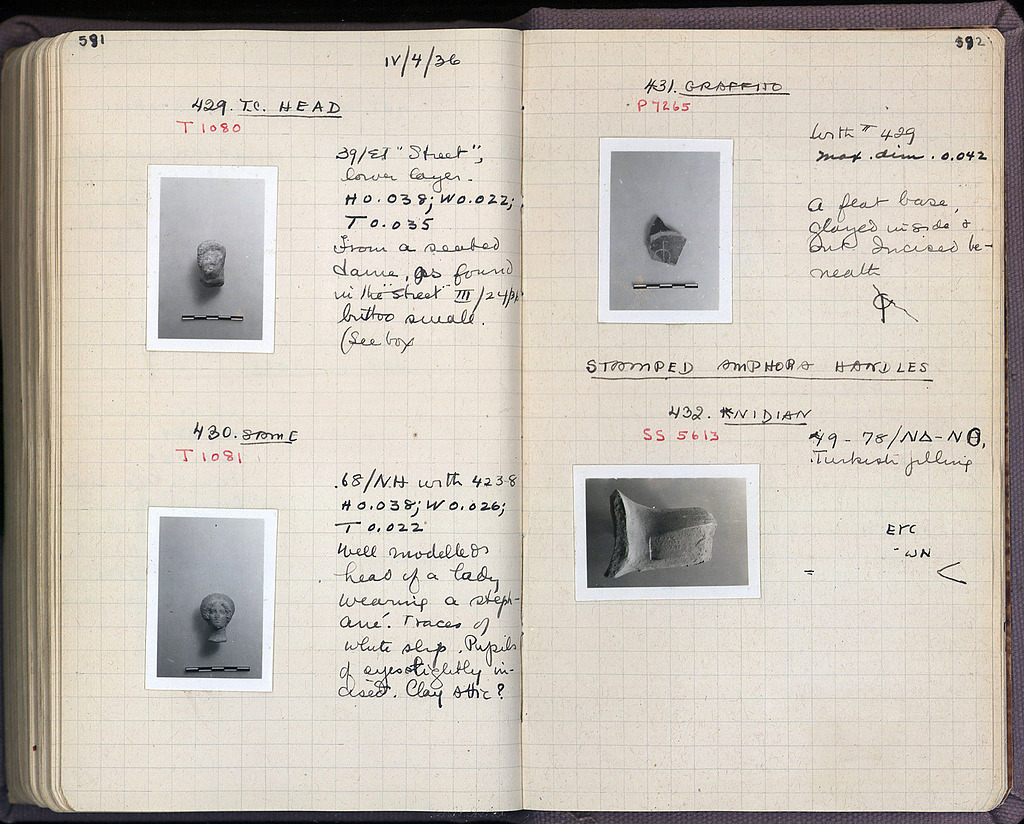 591
IV/4/36
429. T.C. HEAD
T 1080
39/ET "Street",
lower layer.
H 0.038; W 0.022;
T 0.035
From a seated
dame, as found
in the "street" III/24/
but too small.
(See box
430. SAME
T 1081
68/NH with 423-8
H 0.038; W 0.026;
T 0.022
Well modelled
head of a lady
wearing a steph-
ané. Traces of
white slip. Pupils
of eyes slightly in-
cised. Clay Attic?
592
431. GRAFFITO
P 7265
With # 429
Max. dim. 0.042
A flat base,
glazed inside &
out. Incised be-
neath
STAMPED AMPHORA HANDLES
432. KNIDIAN
SS 5613
49-78/ΝΔ-ΝΘ,
Turkish filling
ΕΥC
-ωΝ
=